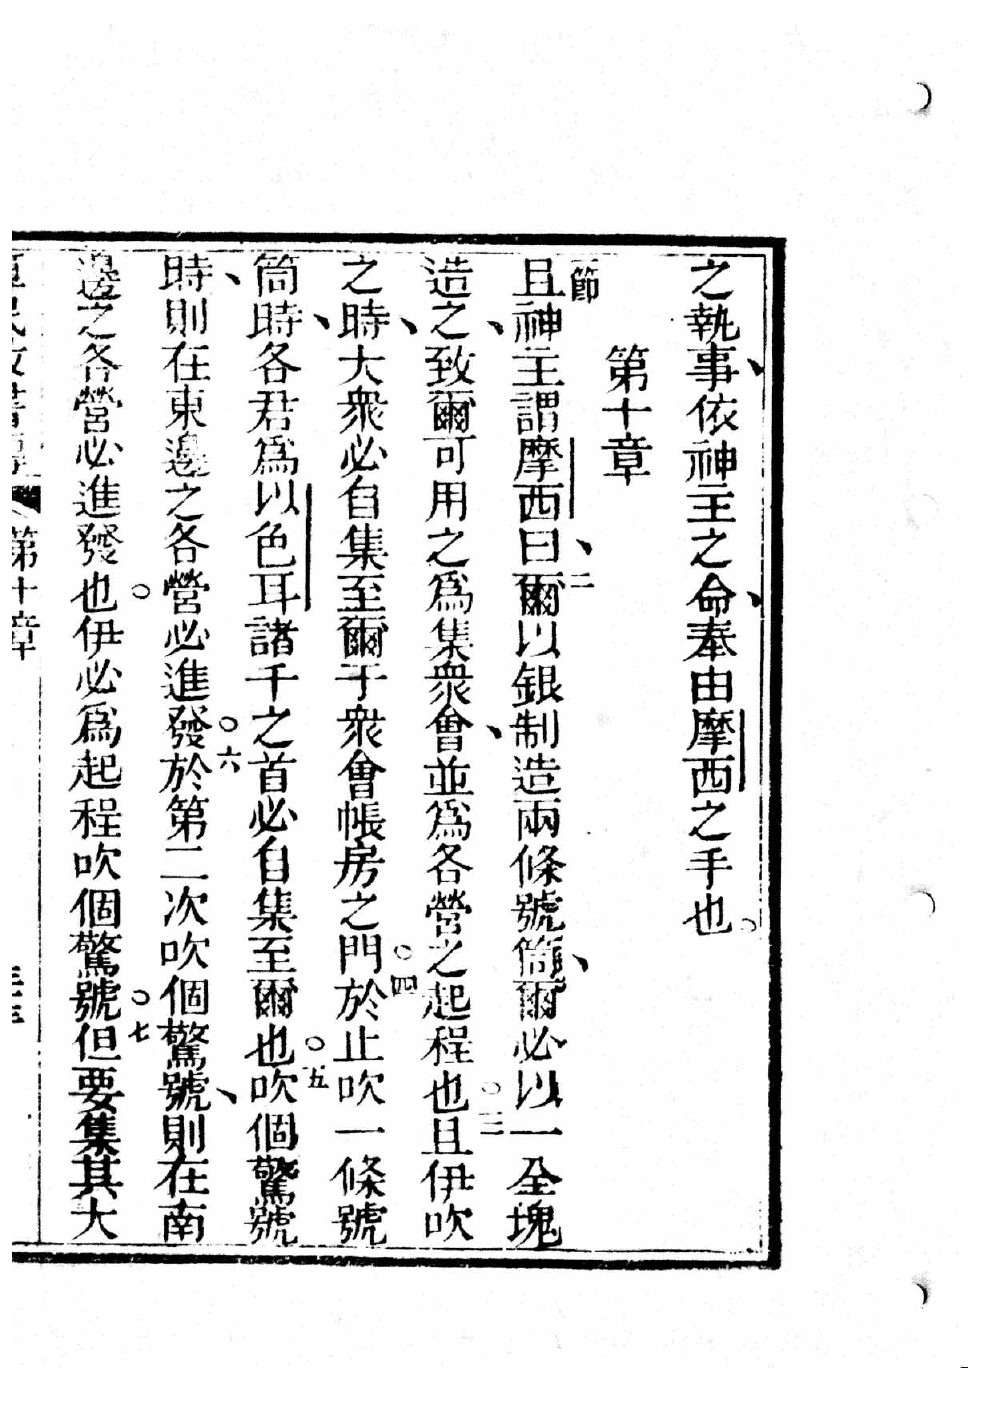 之執事、依神主之命、奉由摩西之手也。
第十章
節且神主謂摩西曰、二爾以銀制造兩條號筒、爾必以一全塊
造之、致爾可用之爲集衆會、並爲各營之起程也。三且伊吹
之時、大衆必自集至爾于衆會帳房之門。四於止吹一條號
筒時、各君爲以色耳諸千之首必自集至爾也。五吹個驚號
時、則在東邊之各營必進發。六於第二次吹個驚號、則在南
邊之各營必進發也。伊必爲起程吹個驚號。七但要集其大
第十章